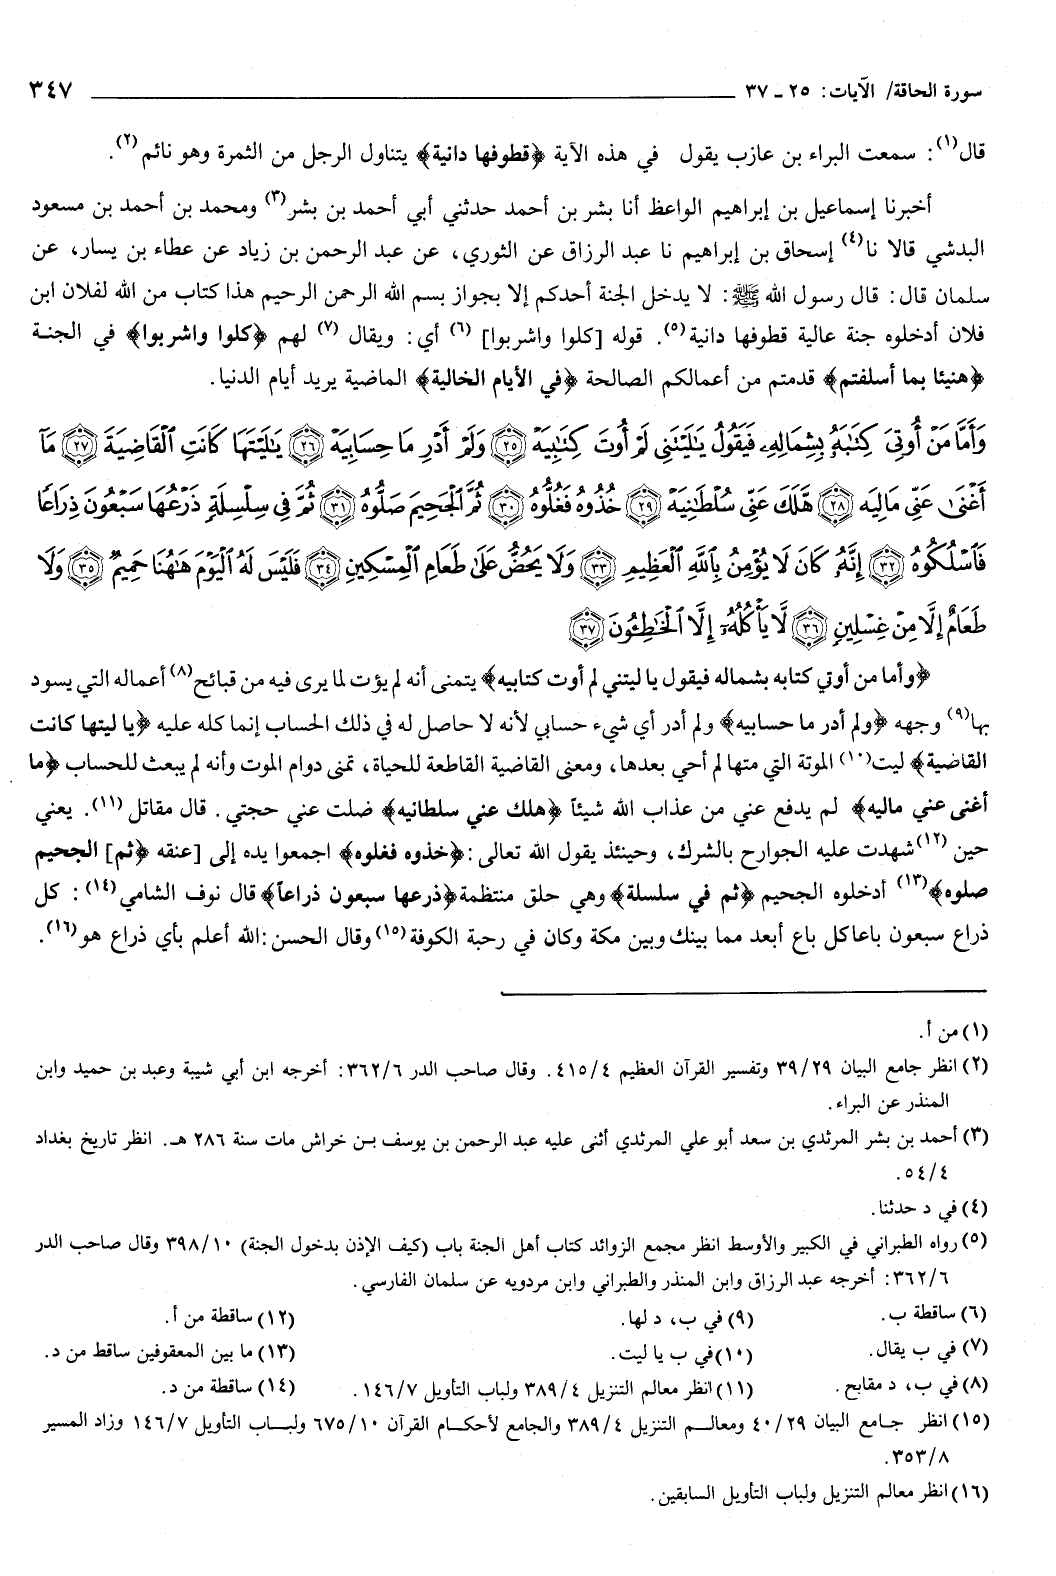 سورة الحاقة/ الآيات: ٢٥ ـ ٣٧ ٣٤٧
قال(١): سمعت البراء بن عازب يقول في هذه الآية ﴿قطوفها دانية﴾ يتناول الرجل من الثمرة وهو نائم(٢).
أخبرنا إسماعيل بن إبراهيم الواعظ أنا بشر بن أحمد حدثني أبي أحمد بن بشر(٣) ومحمد بن أحمد بن مسعود
البدشي قالا نا(٤) إسحاق بن إبراهيم نا عبد الرزاق عن الثوري، عن عبد الرحمن بن زياد عن عطاء بن يسار، عن
سلمان قال: قال رسول الله ﷺ: لا يدخل الجنة أحدكم إلا بجواز بسم الله الرحمن الرحيم هذا كتاب من الله لفلان ابن
فلان أدخلوه جنة عالية قطوفها دانية(٥). قوله [كلوا واشربوا] (٦) أي: ويقال (٧) لهم ﴿كلوا واشربوا﴾ في الجنة
﴿هنيئا بما أسلفتم﴾ قدمتم من أعمالكم الصالحة ﴿في الأيام الخالية﴾ الماضية يريد أيام الدنيا.
وَأَمَّا مَنْ أُوتِيَ كِتَٰبَهُۥ بِشِمَالِهِۦ فَيَقُولُ يَٰلَيْتَنِي لَمْ أُوتَ كِتَٰبِيَهْ ﴿٢٥﴾ وَلَمْ أَدْرِ مَا حِسَابِيَهْ ﴿٢٦﴾ يَٰلَيْتَهَا كَانَتِ ٱلْقَاضِيَةَ ﴿٢٧﴾ مَآ
أَغْنَىٰ عَنِّي مَالِيَهْ ﴿٢٨﴾ هَلَكَ عَنِّي سُلْطَٰنِيَهْ ﴿٢٩﴾ خُذُوهُ فَغُلُّوهُ ﴿٣٠﴾ ثُمَّ ٱلْجَحِيمَ صَلُّوهُ ﴿٣١﴾ ثُمَّ فِي سِلْسِلَةٍ ذَرْعُهَا سَبْعُونَ ذِرَاعًا
فَٱسْلُكُوهُ ﴿٣٢﴾ إِنَّهُۥ كَانَ لَا يُؤْمِنُ بِٱللَّهِ ٱلْعَظِيمِ ﴿٣٣﴾ وَلَا يَحُضُّ عَلَىٰ طَعَامِ ٱلْمِسْكِينِ ﴿٣٤﴾ فَلَيْسَ لَهُ ٱلْيَوْمَ هَٰهُنَا حَمِيمٌ ﴿٣٥﴾ وَلَا
طَعَامٌ إِلَّا مِنْ غِسْلِينٍ ﴿٣٦﴾ لَّا يَأْكُلُهُۥٓ إِلَّا ٱلْخَٰطِـُٔونَ ﴿٣٧﴾
﴿وأما من أوتي كتابه بشماله فيقول يا ليتني لم أوت كتابيه﴾ يتمنى أنه لم يؤت لما يرى فيه من قبائح(٨) أعماله التي يسود
بها(٩) وجهه ﴿ولم أدر ما حسابيه﴾ ولم أدر أي شيء حسابي لأنه لا حاصل له في ذلك الحساب إنما كله عليه ﴿يا ليتها كانت
القاضية﴾ ليت(١٠) الموتة التي متها لم أحي بعدها، ومعنى القاضية القاطعة للحياة، تمنى دوام الموت وأنه لم يبعث للحساب ﴿ما
أغنى عني ماليه﴾ لم يدفع عني من عذاب الله شيئاً ﴿هلك عني سلطانيه﴾ ضلت عني حجتي. قال مقاتل (١١). يعني
حين (١٢) شهدت عليه الجوارح بالشرك، وحينئذ يقول الله تعالى: ﴿خذوه فغلوه﴾ اجمعوا يده إلى [عنقه ﴿ثم] الجحيم
صلوه﴾(١٣) أدخلوه الجحيم ﴿ثم في سلسلة﴾ وهي حلق منتظمة ﴿ذرعها سبعون ذراعاً﴾ قال نوف الشامي(١٤): كل
ذراع سبعون باعا كل باع أبعد مما بينك وبين مكة وكان في رحبة الكوفة(١٥) وقال الحسن: الله أعلم بأي ذراع هو(١٦).
(١) من أ.
(٢) انظر جامع البيان ٣٩/٢٩ وتفسير القرآن العظيم ٤١٥/٤. وقال صاحب الدر ٣٦٢/٦: أخرجه ابن أبي شيبة وعبد بن حميد وابن
المنذر عن البراء.
(٣) أحمد بن بشر المرثدي بن سعد أبو علي المرثدي أثنى عليه عبد الرحمن بن يوسف بن خراش مات سنة ٢٨٦ هـ. انظر تاريخ بغداد
٥٤/٤.
(٤) في د حدثنا.
(٥) رواه الطبراني في الكبير والأوسط انظر مجمع الزوائد كتاب أهل الجنة باب (كيف الإذن بدخول الجنة) ٣٩٨/١٠ وقال صاحب الدر
٣٦٢/٦: أخرجه عبد الرزاق وابن المنذر والطبراني وابن مردويه عن سلمان الفارسي.
(٦) ساقطة ب. (٩) في ب، د لها. (١٢) ساقطة من أ.
(٧) في ب يقال. (١٠) في ب يا ليت. (١٣) ما بين المعقوفين ساقط من د.
(٨) في ب، د مقابح. (١١) انظر معالم التنزيل ٣٨٩/٤ ولباب التأويل ١٤٦/٧. (١٤) ساقطة من د.
(١٥) انظر جامع البيان ٤٠/٢٩ ومعالم التنزيل ٣٨٩/٤ والجامع لأحكام القرآن ٦٧٥/١٠ ولباب التأويل ١٤٦/٧ وزاد المسير
٣٥٣/٨.
(١٦) انظر معالم التنزيل ولباب التأويل السابقين.